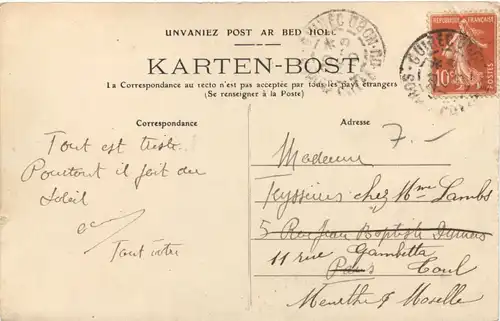 UNVANIEZ POST AR BED HOLL
KARTEN-BOST
La Correspondance au recto n'est pas acceptée par tous les pays étrangers
(Se renseigner à la Poste)
Correspondance
Adresse
REPUBLIQUE FRANÇAISE
10c
POSTES
7.-
Tout est triste
Pourtant il fait du
Soleil
Tout vôtre
Madame
Teyssieux chez Mme Lambs
5 Rue Jean Baptiste Dumas
11 rue Gambetta
Paris Toul
Meurthe & Moselle